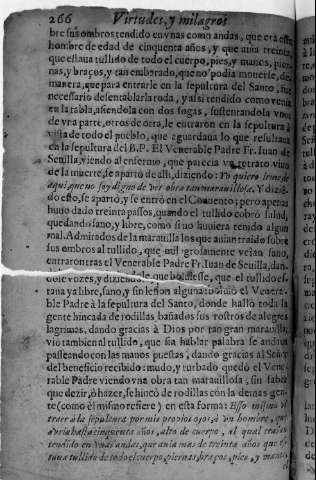 266 Virtudes, y milagros
bre sus ombros tendido en vnas como andas, que era este
hombre de edad de cinquenta años, y que auia treinta,
que estaua tullido de todo el cuerpo, pies, y manos, pier-
nas, y braços, y tan emborado, que no podia mouerse, de
manera, que para entrarle en la sepultura del Santo, fue
necessario desentablarla toda, y assi tendido como venia
en la tabla, asiendola con dos sogas, sustentandola vnos
de vna parte, otros de otra, le entraron en la sepultura à
vista de todo el pueblo, que aguardaua lo que resultaua
en la sepultura del B.P. El Venerable Padre Fr. Iuan de
Seuilla, viendo al enfermo, que parecia vn retrato viuo
de la muerte, se apartò de alli, diziendo: Yo quiero irme de
aqui, que no soy digno de ver obra tan marauillosa. Y dizié-
do esto, se apartò, y se entrò en el Conuento; pero apenas
huuo dado treinta passos, quando el tullido cobrò salud,
quedando sano, y libre, como si no huuiera tenido algun
mal. Admirados de la marauilla los que auian traido sobre
sus ombros al tullido, que milagrosamente veian sano,
entraron tras el Venerable Padre Fr. Iuan de Seuilla, dan-
dole vozes, y diziendole, que boluiesse, que el tullido es-
taua ya libre, sano, y sin lesion alguna: boluiò el Venera-
ble Padre à la sepultura del Santo, donde hallò toda la
gente hincada de rodillas bañados sus rostros de alegres
lagrimas, dando gracias à Dios por tan gran marauilla,
viò tambien al tullido, que sia hablar palabra se andaua
passeando con las manos puestas, dando gracias al Señor
del beneficio recibido: mudo, y turbado quedò el Vene-
rable Padre viendo vna obra tan marauillosa, sin saber
que dezir, ò hazer, se hincò de rodillas con la demas gen-
te (como èl mismo refiere) en esta forma: Esso mismo vi
traer à la sepultura por mis propios ojos, à vn hombre, que
auria hasta cinquenta años, alto de cuerpo, al qual traian
tendido en vnas andas, que auia mas de treinta años que es-
taua tullido de todo el cuerpo, piernas, braços, pies, y manos,